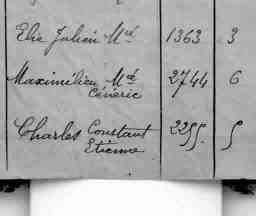 Elie Julien Md 1363 3
Maximilien Md 2744 6
Cénéric
Charles Constant 2255. 5
Etienne